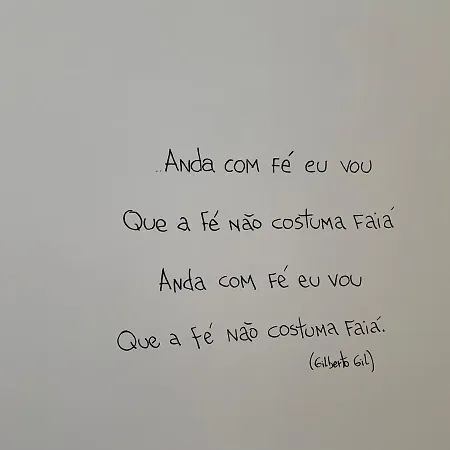 ..Anda com fé eu vou
Que a fé não costuma faiá
Anda com fé eu vou
Que a fé não costuma faiá.
(Gilberto Gil)